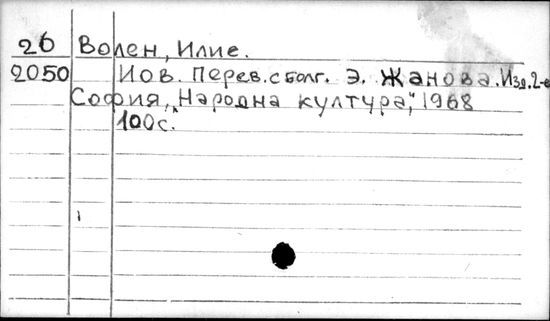 26 Волен, Илие.
2050 Иов. Перев. с болг. Э. Жанова. Изд. 2-е
София, „Народна култура", 1968
100 с.